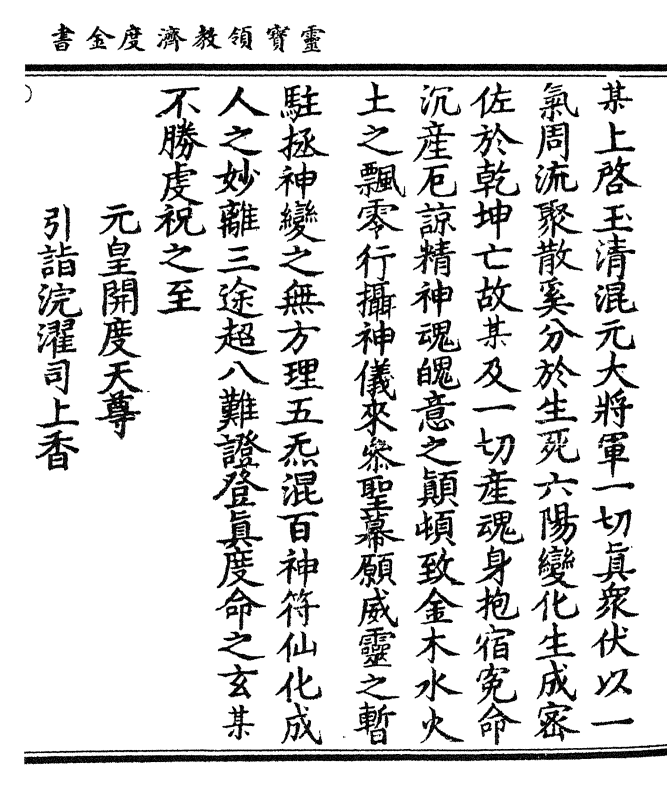 靈寶領教濟度金書
某上啓玉清混元大將軍一切眞衆伏以一
氣周流聚散奚分於生死六陽變化生成密
佐於乾坤亡故某及一切産魂身抱宿寃命
沉産厄諒精神魂魄意之顚頓致金木水火
土之飄零行攝神儀來叅聖幕願威靈之暫
駐拯神變之無方理五炁混百神符仙化成
人之妙離三途超八難證登眞度命之玄某
不勝虔祝之至
元皇開度天尊
引詣浣濯司上香